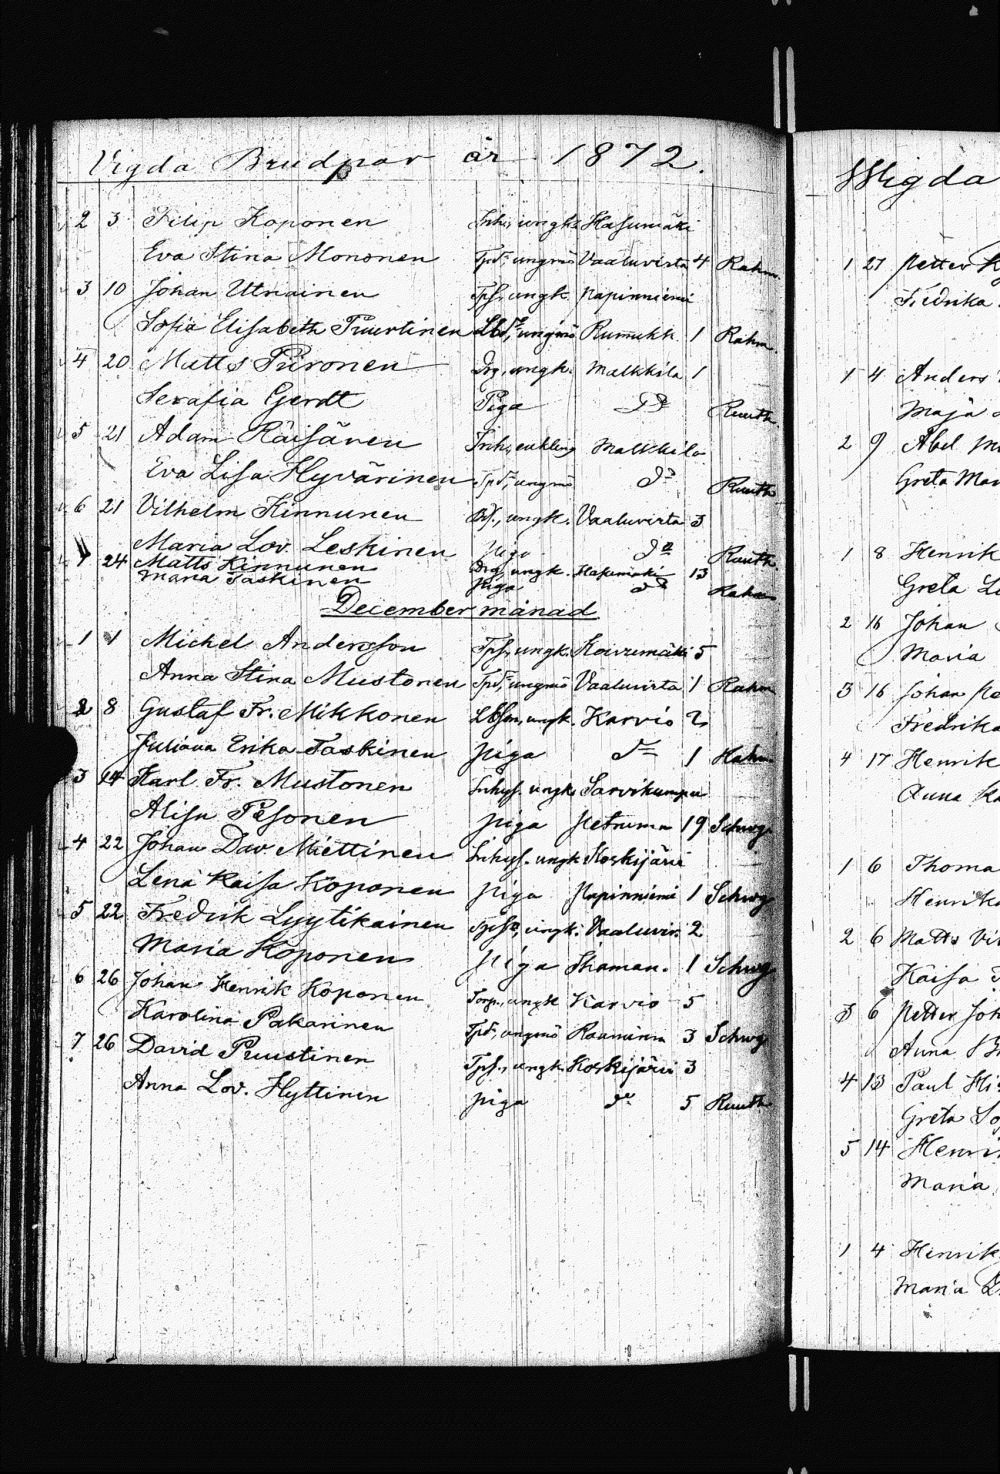 Vigda Brudpar år 1872.
2 3 Filip Koponen Inh., ungk. Hasumäki
Eva Stina Mononen Tpd:r, ungmö Vaaluvirta 4 Rahm.
3 10 Johan Utriainen Tps., ungk. Papinniemi
Sofia Elisabeth Puurtinen Lbd:r, ungmö Rumukk. 1 Rahm.
4 20 Matts Piironen Drg, ungk. Malkkila 1
Serafia Gerdt Piga D:o Ruuth
5 21 Adam Räisänen Inh., enkling Malkkila
Eva Lisa Hyvärinen Tpd:r, ungmö d:o Ruuth
6 21 Vilhelm Kinnunen ungk. Vaaluvirta 3
Maria Lov. Leskinen Piga d:o Ruuth
7 24 Matts Kinnunen Drg, ungk. Hasumäki 13
Maria Taskinen Piga d:o Rahm
December månad
1 1 Mickel Andersson Tps, ungk. Koivumäki 5
Anna Stina Mustonen Tpd:r, ungmö Vaaluvirta 1 Rahm
2 8 Gustaf Fr. Mikkonen Lbson, ungk. Karvio 2
Juliana Erika Taskinen piga d:o 1 Rahm
3 14 Karl Fr. Mustonen Inhys. ungk. Sarvikumpu
Alisa Pesonen piga Petruma 19 Schwg
4 22 Johan Dav Miettinen Inhys. ungk Koskijärvi
Lena Kaisa Koponen piga Papinniemi 1 Schwg
5 22 Fredrik Lyytikainen ungk. Vaaluvir. 2
Maria Koponen piga 1 Schwg
6 26 Johan Henrik Koponen Torp., ungk Karvio 5
Karolina Pakarinen Tpd:r, ungmö 3 Schwg
7 26 David Puustinen Tps., ungk. Koskijärvi 3
Anna Lov. Hyttinen piga d:o 5 Ruuth
Wigda
1 27 Petter
Fredrika
1 4 Anders
Maja
2 9 Abel
Greta
1 8 Henrik
Greta
2 16 Johan
Maria
3 16 Johan
Fredrika
4 17 Henrik
Anna
1 6 Thoma
Henrika
2 6 Matts
Kaisa
3 6 Petter Joh
Anna
4 13 Paul
Greta
5 14 Henri
Maria
1 4 Henrik
Maria